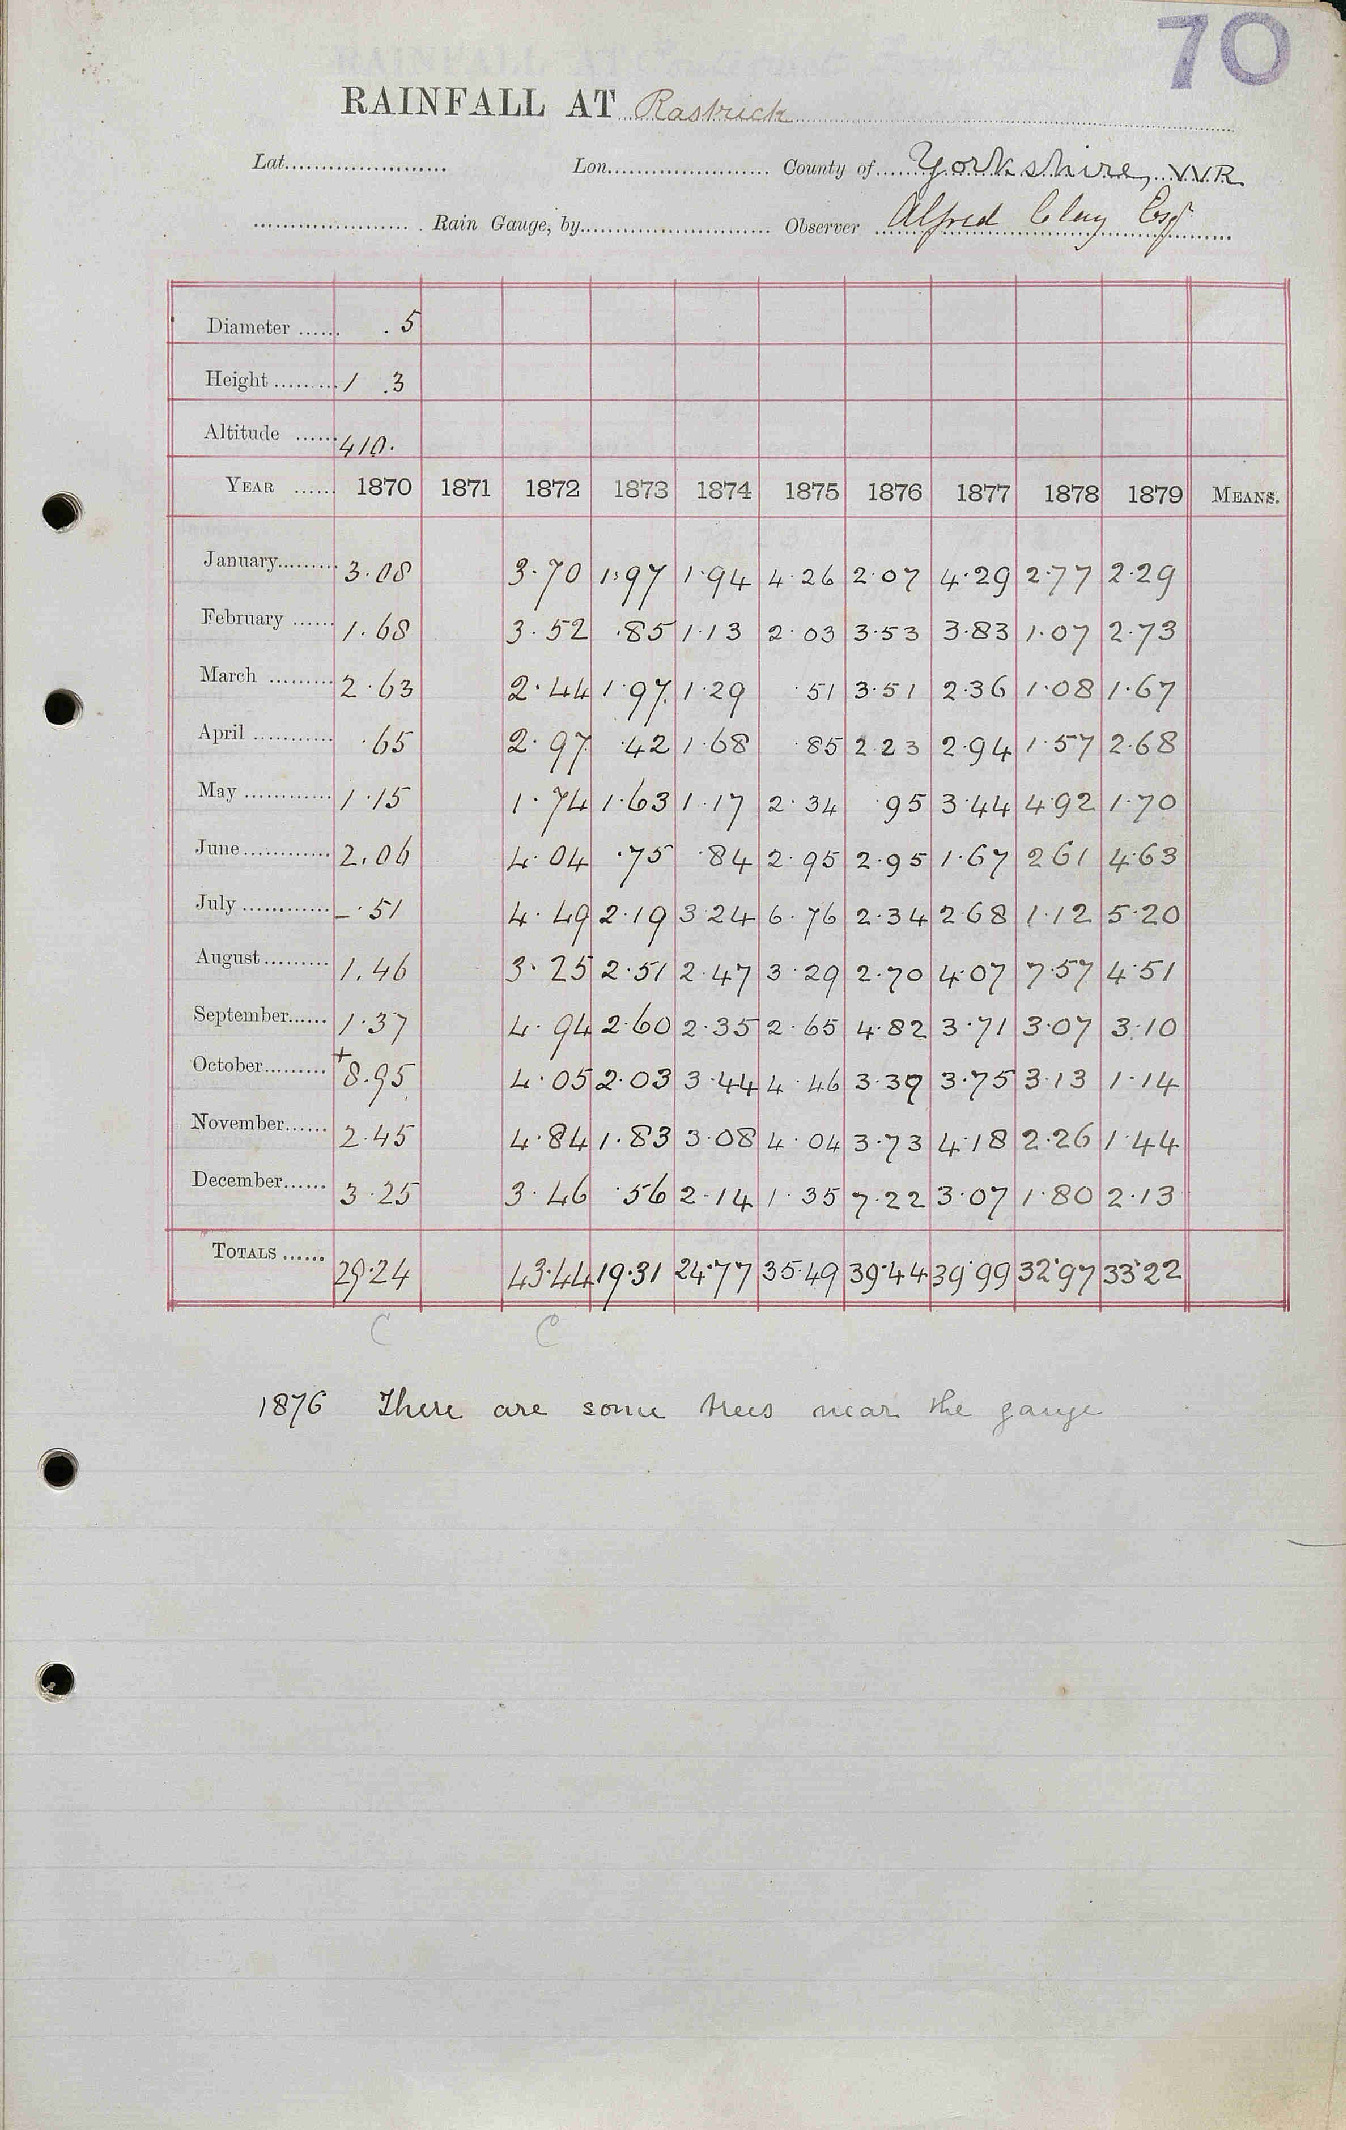 70
RAINFALL AT Rastrick
Lat. Lon. County of Yorkshire, W.R.
Rain Gauge, by Observer Alfred Clay Esqr
Diameter ...... .5
Height ......... 1 .3
Altitude ...... 410.
YEAR ...... 1870 1871 1872 1873 1874 1875 1876 1877 1878 1879 MEANS.
January......... 3.08 3.70 1.97 1.94 4.26 2.07 4.29 2.77 2.29
February ...... 1.68 3.52 .85 1.13 2.03 3.53 3.83 1.07 2.73
March ......... 2.63 2.44 1.97 1.29 .51 3.51 2.36 1.08 1.67
April ............ .65 2.97 .42 1.68 .85 2.23 2.94 1.57 2.68
May ............ 1.15 1.74 1.63 1.17 2.34 .95 3.44 4.92 1.70
June............ 2.06 4.04 .75 .84 2.95 2.95 1.67 2.61 4.63
July ............ -.51 4.49 2.19 3.24 6.76 2.34 2.68 1.12 5.20
August......... 1.46 3.25 2.51 2.47 3.29 2.70 4.07 7.57 4.51
September...... 1.37 4.94 2.60 2.35 2.65 4.82 3.71 3.07 3.10
October......... +8.95 4.05 2.03 3.44 4.46 3.39 3.75 3.13 1.14
November...... 2.45 4.84 1.83 3.08 4.04 3.73 4.18 2.26 1.44
December...... 3.25 3.46 .56 2.14 1.35 7.22 3.07 1.80 2.13
TOTALS ...... 29.24 43.44 19.31 24.77 35.49 39.44 39.99 32.97 33.22
C C
1876 There are some trees near the gauge